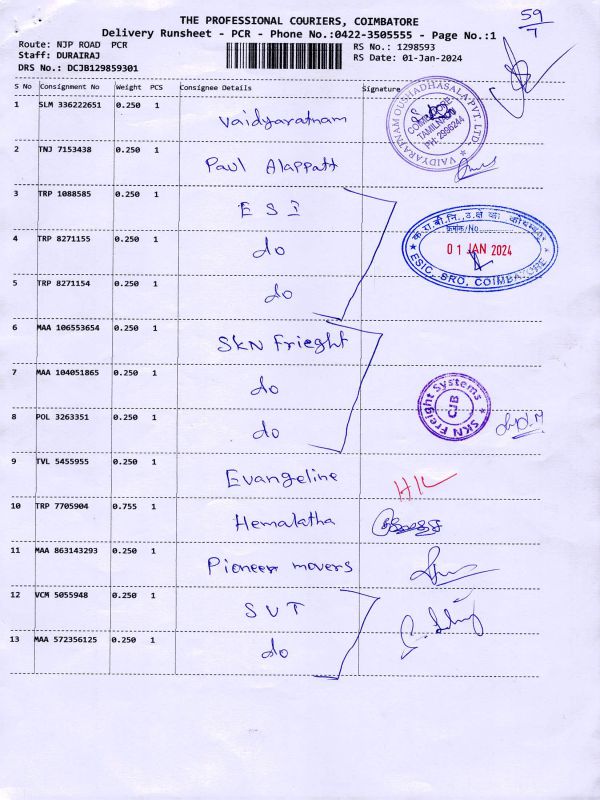 THE PROFESSIONAL COURIERS, COIMBATORE
Delivery Runsheet - PCR - Phone No.:0422-3505555 - Page No.:1
59
7
Route: NJP ROAD PCR
Staff: DURAIRAJ
DRS No.: DCJB129859301
RS No.: 1298593
RS Date: 01-Jan-2024
S No Consignment No Weight PCS Consignee Details Signature
1 SLM 336222651 0.250 1 Vaidyaratnam
VAIDYARATNAM OUSHADHASALA PVT. LTD.
COIMBATORE
TAMILNADU
PH: 2996244
2 TNJ 7153438 0.250 1 Paul Alappatt
3 TRP 1088585 0.250 1 E S I
4 TRP 8271155 0.250 1 do
01 JAN 2024
ESIC, SRO, COIMBATORE
5 TRP 8271154 0.250 1 do
6 MAA 106553654 0.250 1 SKN Frieght
7 MAA 104051865 0.250 1 do
SKN Freight Systems
CJB
8 POL 3263351 0.250 1 do
9 TVL 5455955 0.250 1 Evangeline
10 TRP 7705904 0.755 1 Hemalatha
11 MAA 863143293 0.250 1 Pioneer movers
12 VCM 5055948 0.250 1 S V T
13 MAA 572356125 0.250 1 do